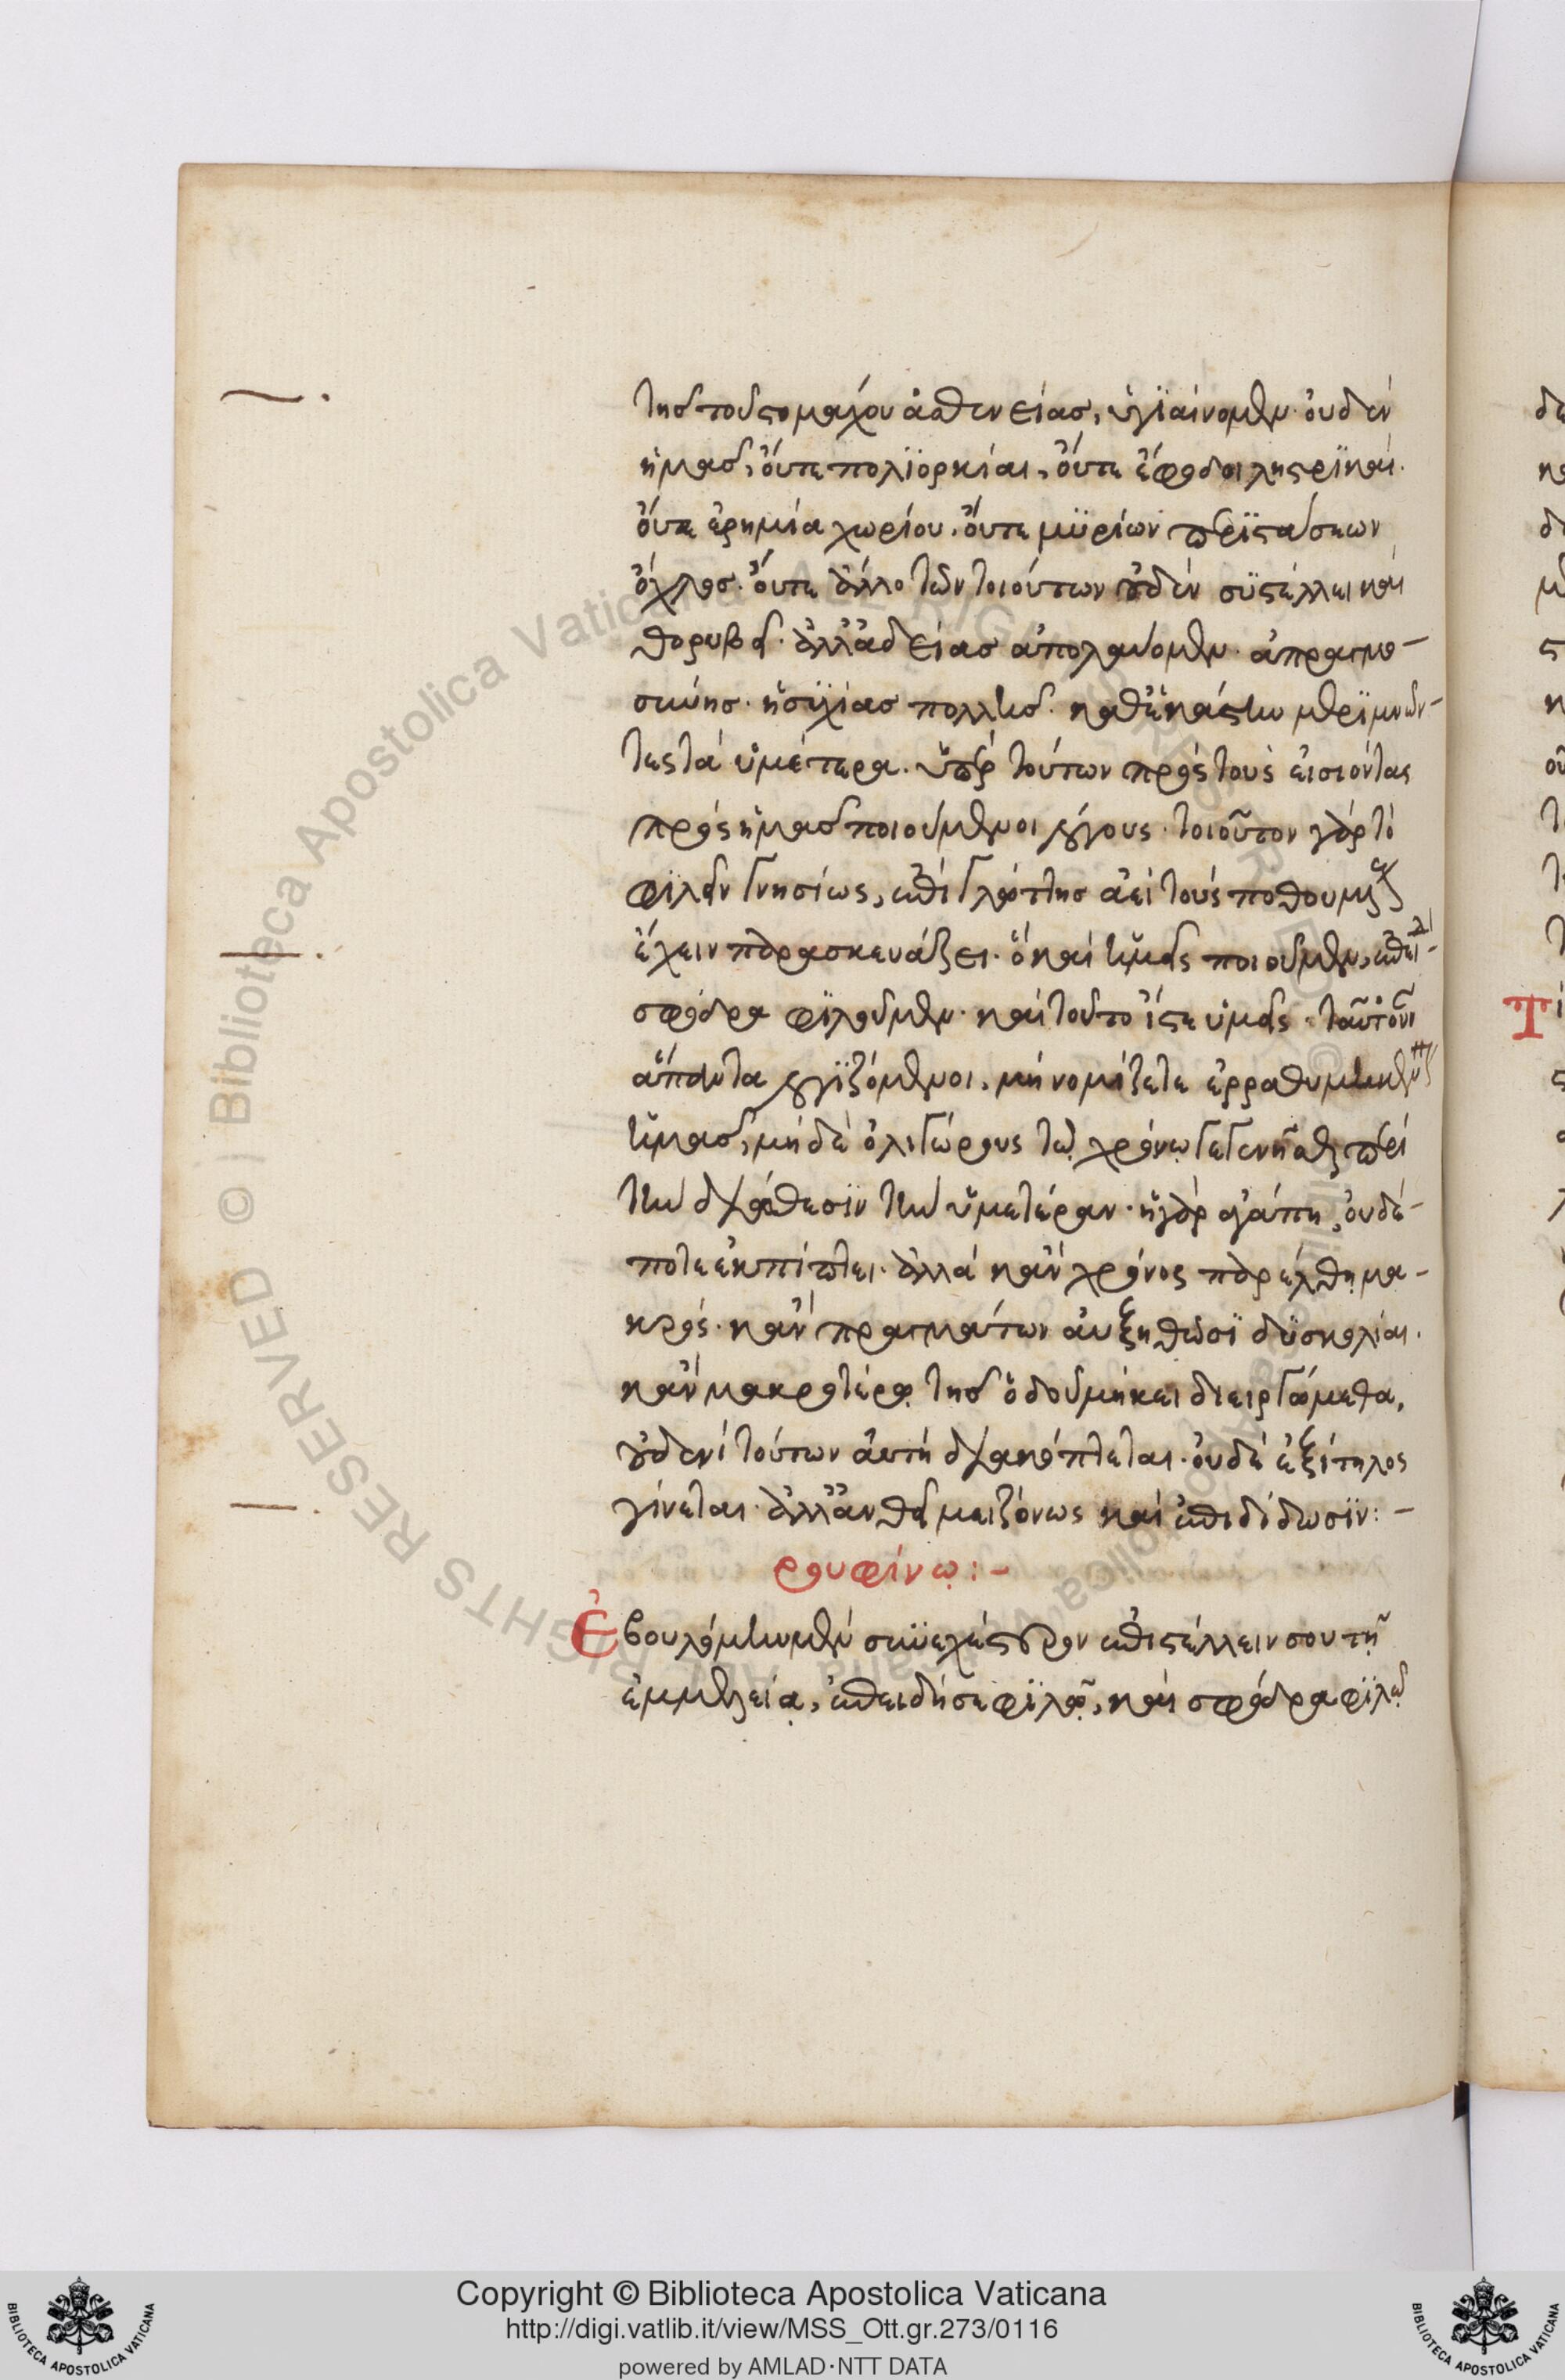 τῆς τοῦ στομάχου ἀσθενείας, ὑγιαίνομεν· οὐδὲν
ἡμᾶς, οὔτε πολιορκίαι, οὔτε ἔφοδοι λῃστρικαί.
οὔτε ἐρημία χωρίου. οὔτε μυρίων περιστάσεων
ὄχλος. οὔτε ἄλλο τῶν τοιούτων οὐδὲν συστέλλει καὶ
θορυβεῖ. ἀλλ' ἀδείας ἀπολαύομεν. ἀπραγμο-
σύνης. ἡσυχίας πολλῆς. καθ' ἑκάστην μεριμνῶν-
τες τὰ ὑμέτερα. ὑπὲρ τούτων πρὸς τοὺς εἰσιόντας
πρὸς ἡμᾶς ποιούμενοι λόγους· τοιοῦτον γὰρ τὸ
φιλεῖν γνησίως, ἐπὶ γλώττης ἀεὶ τοὺς ποθουμένους
ἔχειν παρασκευάζει. ὃ καὶ ἡμεῖς ποιοῦμεν, ἐπειδὴ
σφόδρα φιλοῦμεν. καὶ τοῦτο ἴστε ὑμεῖς. ταῦτ' οὖν
ἅπαντα λογιζόμενοι. μὴ νομίζετε ἐρραθυμηκέναι
ἡμᾶς, μηδὲ ὀλιγώρους τῷ χρόνῳ γεγενῆσθαι περὶ
τὴν διάθεσιν τὴν ὑμετέραν. ἡ γὰρ ἀγάπη, οὐδέ-
ποτε ἐκπίπτει. ἀλλὰ κἂν χρόνος παρέλθῃ μα-
κρός. κἂν πραγμάτων αὐξηθῶσι δυσκολίαι.
κἂν μακροτέρῳ τῆς ὁδοῦ μήκει διειργώμεθα,
οὐδενὶ τούτων αὐτὴ διακόπτεται. οὐδὲ ἐξίτηλος
γίνεται. ἀλλ' ἀνθεῖ μειζόνως καὶ ἐπιδίδωσιν:-
ρουφίνῳ:-
Ἐβουλόμην μὲν συνεχέστερον ἐπιστέλλειν σου τῇ
ἐμμελείᾳ, ἐπειδή σε φιλῶ, καὶ σφόδρα φιλῶ
Copyright © Biblioteca Apostolica Vaticana
http://digi.vatlib.it/view/MSS_Ott.gr.273/0116
powered by AMLAD·NTT DATA
BIBLIOTECA APOSTOLICA VATICANA
BIBLIOTECA APOSTOLICA VATICANA